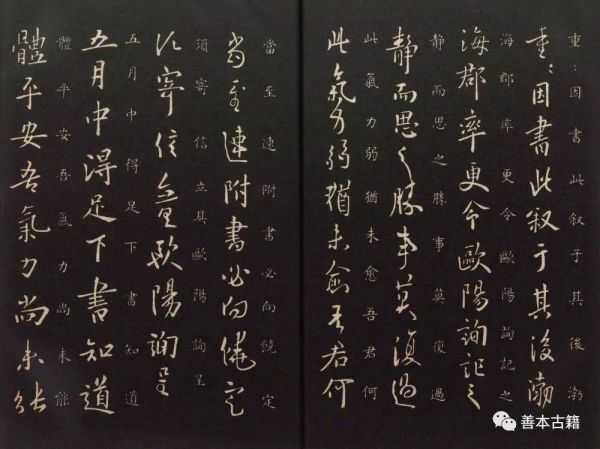 重〻因書此叙子其後渤
重〻因書此叙于其後渤
海郡率更令歐陽詢記之
海郡率更令歐陽詢記之
静而思之勝事莫復過
静而思之勝事莫復過
此氣力弱猶未愈吾君何
此氣力弱猶未愈吾君何
當至速附書必向饒定
當至速附書必向饒定
須寄信立具歐陽詢呈
須寄信立具歐陽詢呈
五月中得足下書知道
五月中得足下書知道
體平安吾氣力尚未能
體平安吾氣力尚未能
善本古籍